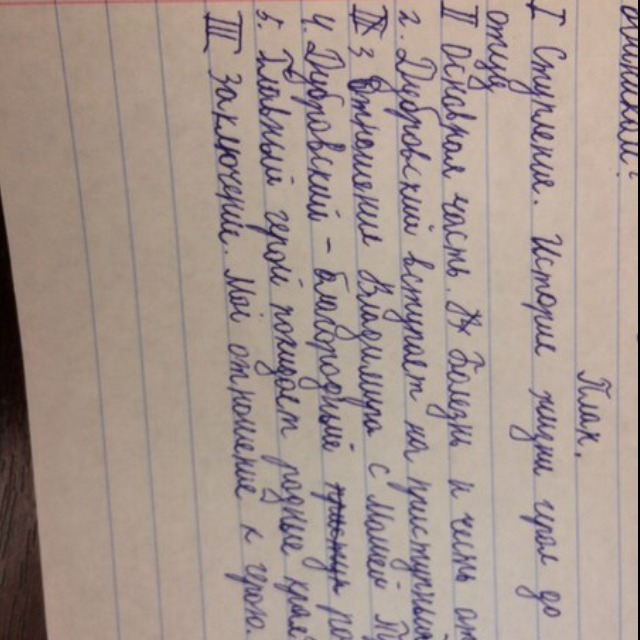 План.
I Ступление. История жизни героя до
отца
II Основная часть. Болезнь и честь от
2. Дубровский вступает на преступный
3 Отношения Владимира с Машей
4. Дубровский - благородный
5. Главный герой покидает родные края
III Заключение. Моё отношение к героям.